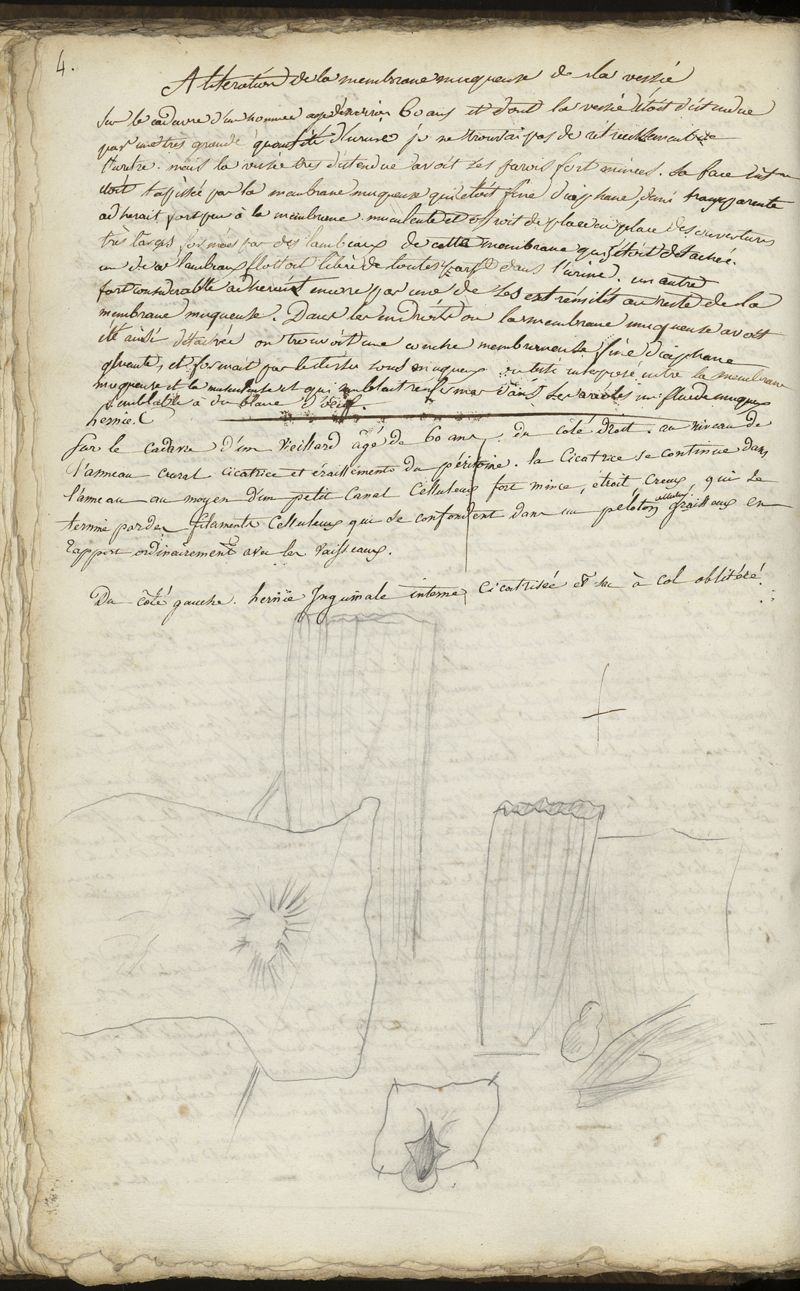 4.
Altération de la membrane muqueuse de la vessie
Sur le cadavre d'un homme agé d'environ 60 ans et dont la vessie étoit distendue
par une très grande quantité d'urine je ne trouvai pas de
l'urètre. mais la vessie très distendue avoit ses parois fort minces. sa face
étoit tapissée par la membrane muqueuse qui étoit fine diaphane demi transparente
adherait fort peu à la membrane musculeuse et offroit de place en place des ouvertures
très larges formées par des lambeaux de cette membrane qui s'étoit détachée.
un de ces lambeaux flottoit libre de toutes parts dans l'urine. un autre
fort considerable adherent encore par une de ses extrémités au reste de la
membrane muqueuse. Dans les endroits ou la membrane muqueuse avoit
été ainsi détachée on trouvoit une couche membraneuse fine diaphane
gluante, et formait par le tissu sous muqueux interposé entre la membrane
muqueuse et la musculeuse et qui semblait renfermer dans ses aréoles un fluide muqueux
semblable à du blanc d'œuf.
hernie.
Sur le cadavre d'un vieillard âgé de 60 ans, du coté droit. au niveau de
l'anneau crural cicatrice et éraillements du péritoine. la cicatrice se continue dans
l'anneau au moyen d'un petit canal celluleux fort mince, étroit creux, qui se
termine par des filaments celluleux qui se confondent dans un peloton graisseux en
rapport ordinairement avec les vaisseaux.
Du côté gauche. hernie Inguinale interne cicatrisée et sac à col oblitéré.